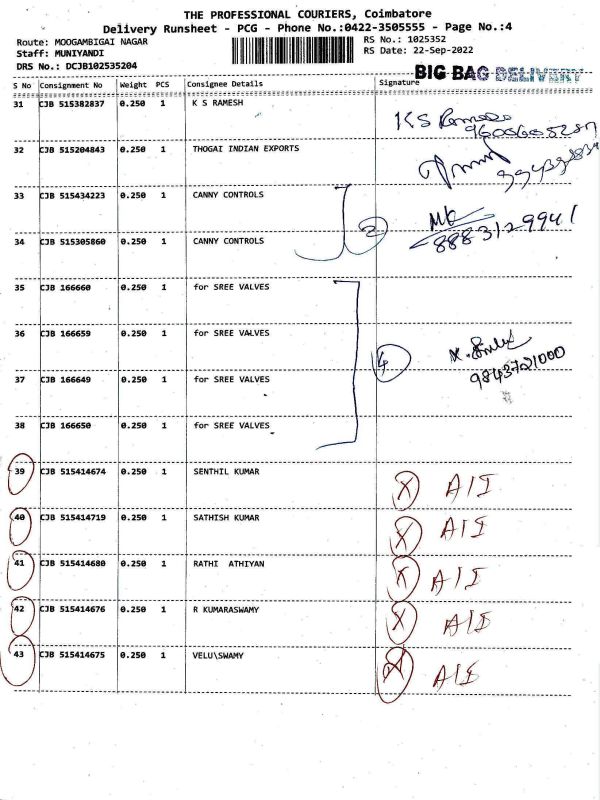 THE PROFESSIONAL COURIERS, Coimbatore
Delivery Runsheet - PCG - Phone No.:0422-3505555 - Page No.:4
Route: MOOGAMBIGAI NAGAR RS No.: 1025352
Staff: MUNIYANDI RS Date: 22-Sep-2022
DRS No.: DCJB102535204
BIG BAG DELIVERY
S No Consignment No Weight PCS Consignee Details Signature
31 CJB 515382837 0.250 1 K S RAMESH KS
32 CJB 515204843 0.250 1 THOGAI INDIAN EXPORTS
33 CJB 515434223 0.250 1 CANNY CONTROLS MK
2
34 CJB 515305860 0.250 1 CANNY CONTROLS 8883129941
35 CJB 166660 0.250 1 for SREE VALVES
36 CJB 166659 0.250 1 for SREE VALVES
4
37 CJB 166649 0.250 1 for SREE VALVES 9843721000
38 CJB 166650 0.250 1 for SREE VALVES
39 CJB 515414674 0.250 1 SENTHIL KUMAR X A/I
40 CJB 515414719 0.250 1 SATHISH KUMAR X A/I
41 CJB 515414680 0.250 1 RATHI ATHIYAN X A/I
42 CJB 515414676 0.250 1 R KUMARASWAMY X A/I
43 CJB 515414675 0.250 1 VELU\SWAMY X A/I